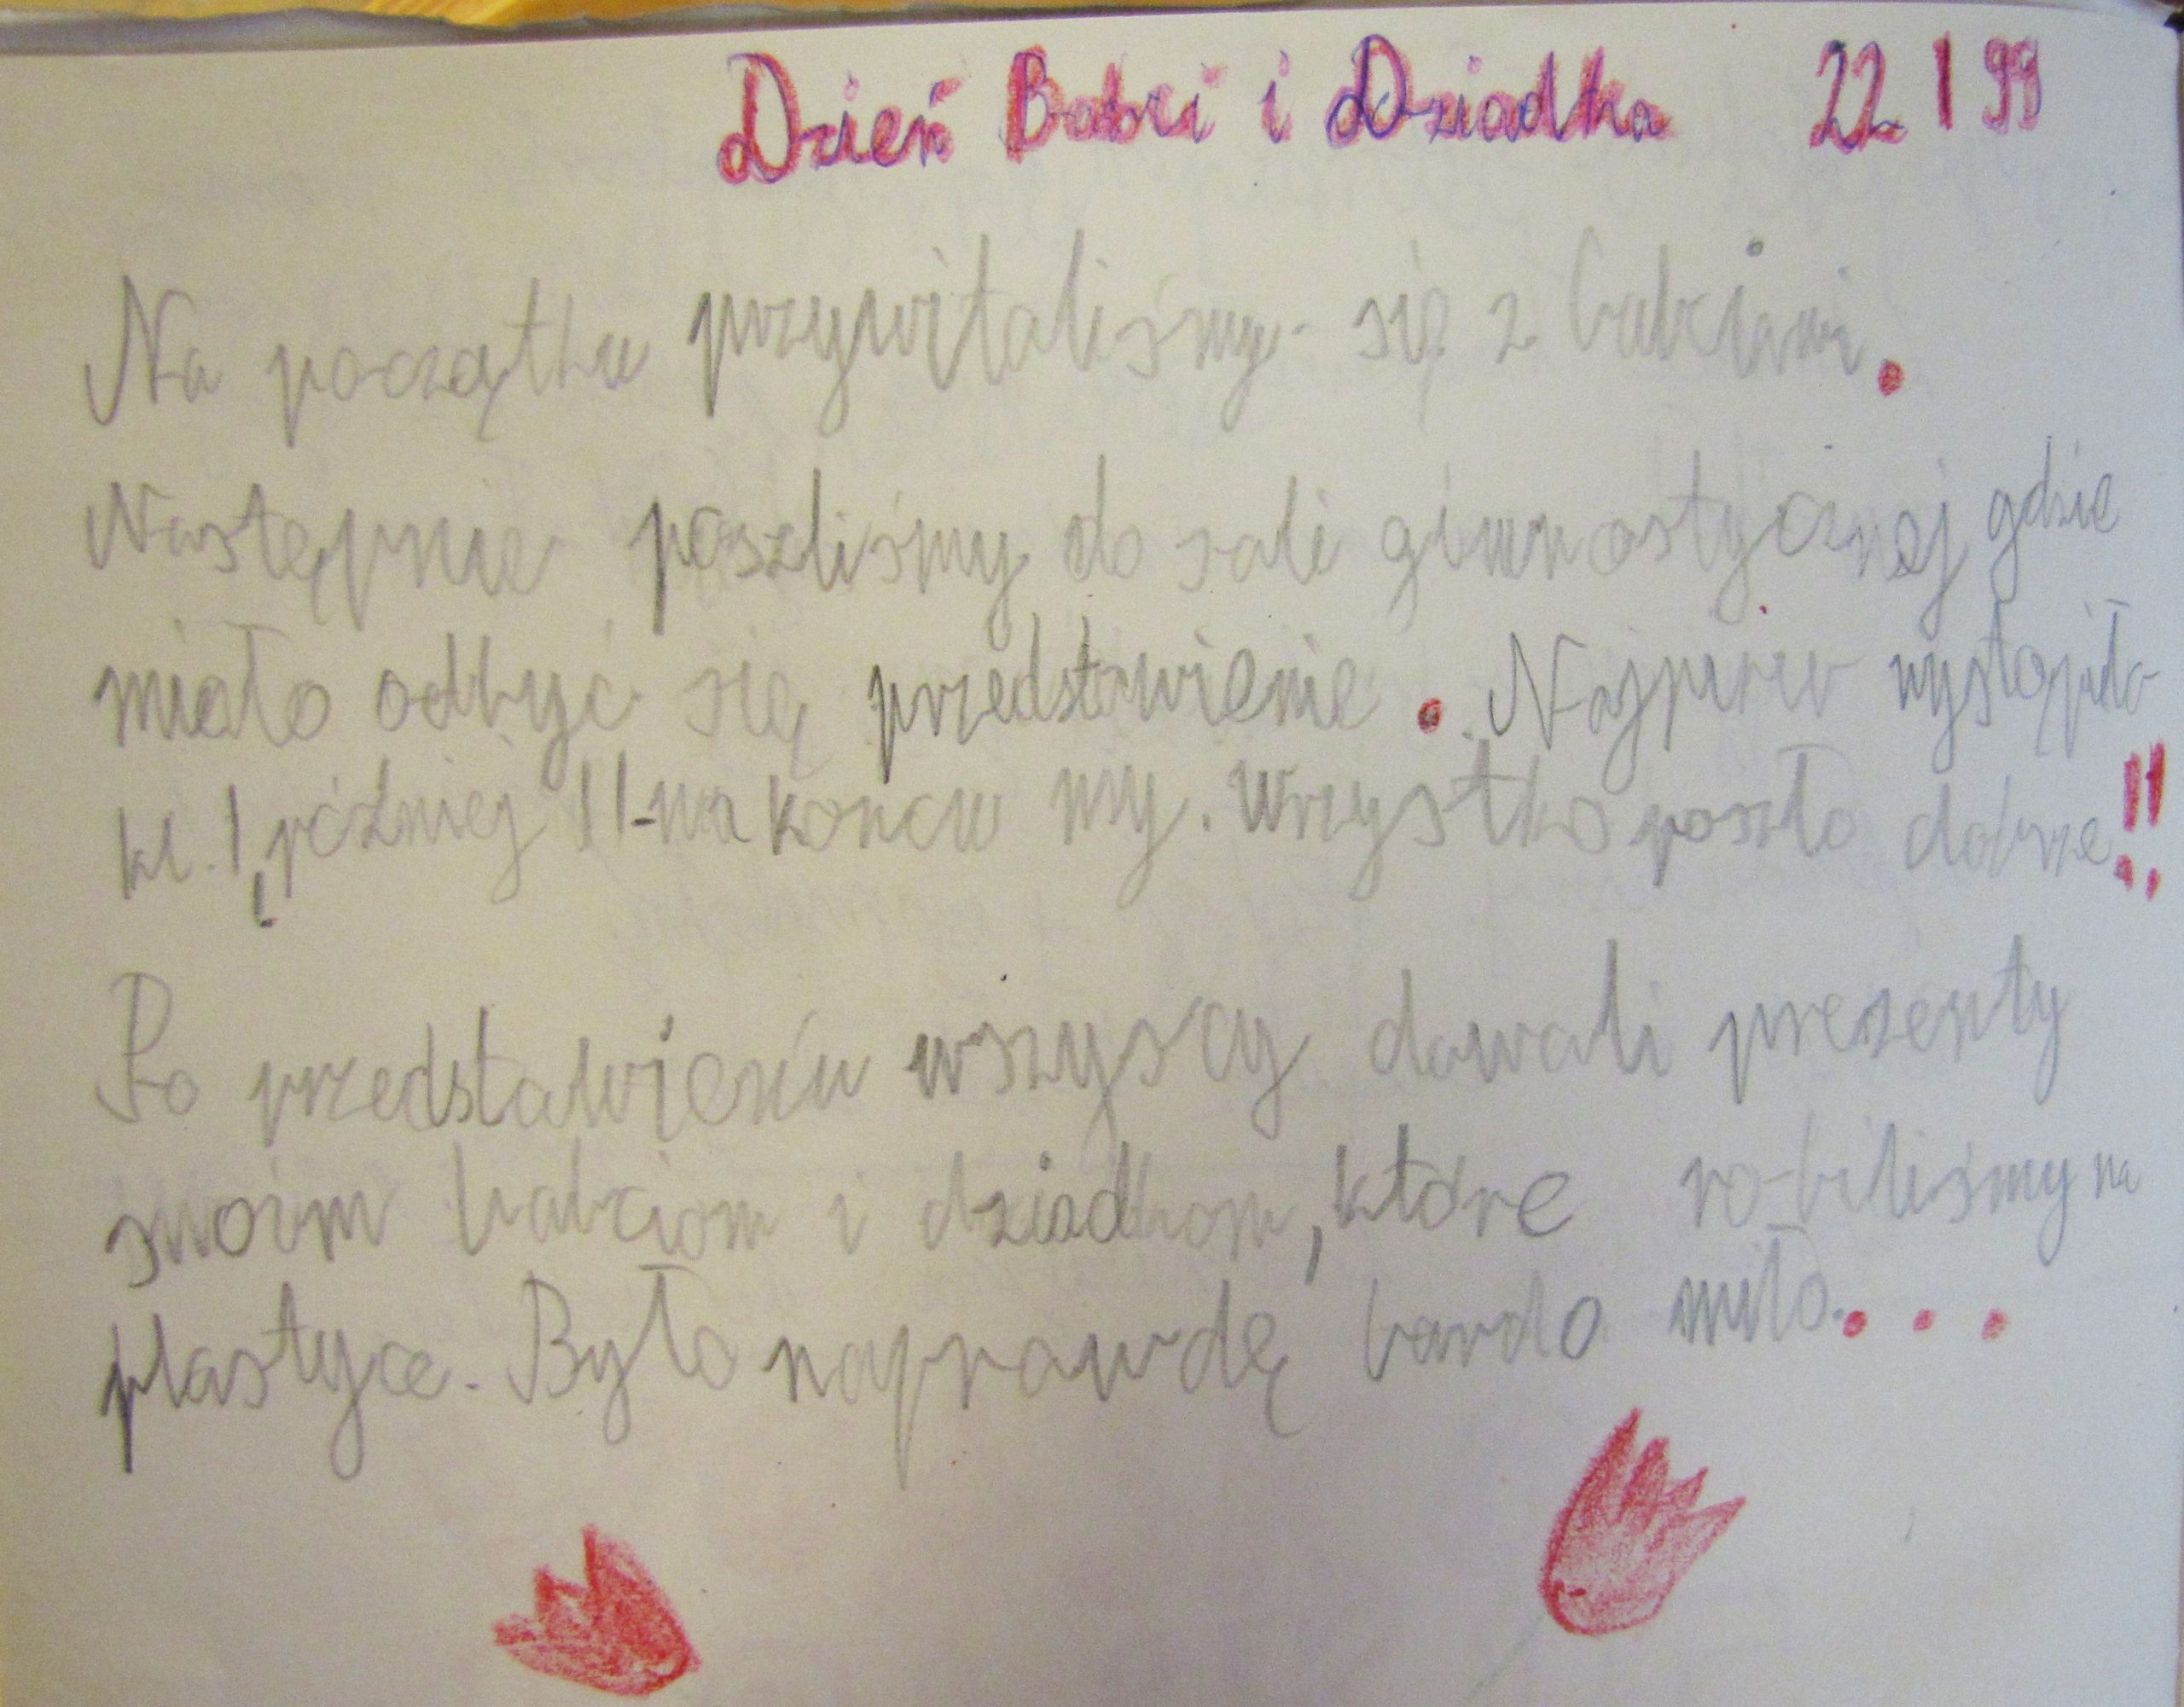 Dzień Babci i Dziadka 22 I 99
Na początku przywitaliśmy się z babciami.
Następnie poszliśmy do sali gimnastycznej gdzie
miało odbyć się przedstawienie. Najpierw wystąpiła
kl. I, później II-na końcu my. Wszystko poszło dobrze!!
Po przedstawieniu wszyscy dawali prezenty
swoim babciom i dziadkom, które robiliśmy na
plastyce. Było naprawdę bardo miło...